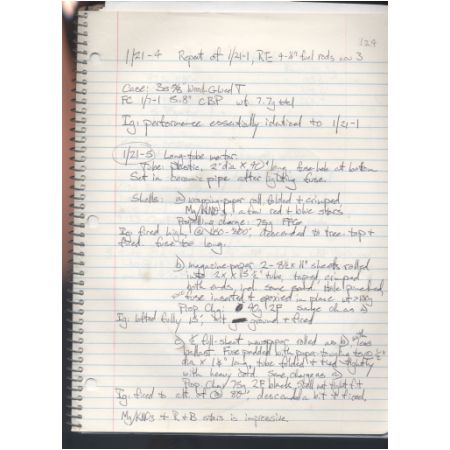 124
1/21-4 Repeat of 1/21-1, RE 4-8" fuel rods now 3
Case: 30 5/8" Wood-Glued T
FC 1/7-1 5.8" CBP wt. 7.7g ttl
Ig: performance essentially identical to 1/21-1
1/21-5: Long-tube mortar
Tube: plastic, 2" dia X long fuse-hole at bottom
Set in ceramic pipe after lighting fuse.
Shells: a) wrapping-paper roll folded + crimped,
Mg/KNO3 + a few red + blue stars
Propelling charge: 75g FFG
Ig: fired high, @ 250-300', descended to tree top +
fired. fuse too long.
b) magazine-paper 2-8½ X 11" sheets rolled
into tube, taped, crimped
both ends, hole punched,
fuse inserted + epoxied in place
Prop. Chg 2F same as a)
Ig: lofted fully 15', hit ground + fired
c) ½ full-sheet newspaper rolled as b), with less
ballast. Fuse padded with paper
dia X 1½" long, tube folded + tied tightly
with heavy cord. Same charge as a)
Prop. Chg 75g 2F black, shell not tight fit
Ig: fired to alt. of @ 80', descended a bit + fired.
Mg/KNO3 + R + B stars is impressive.